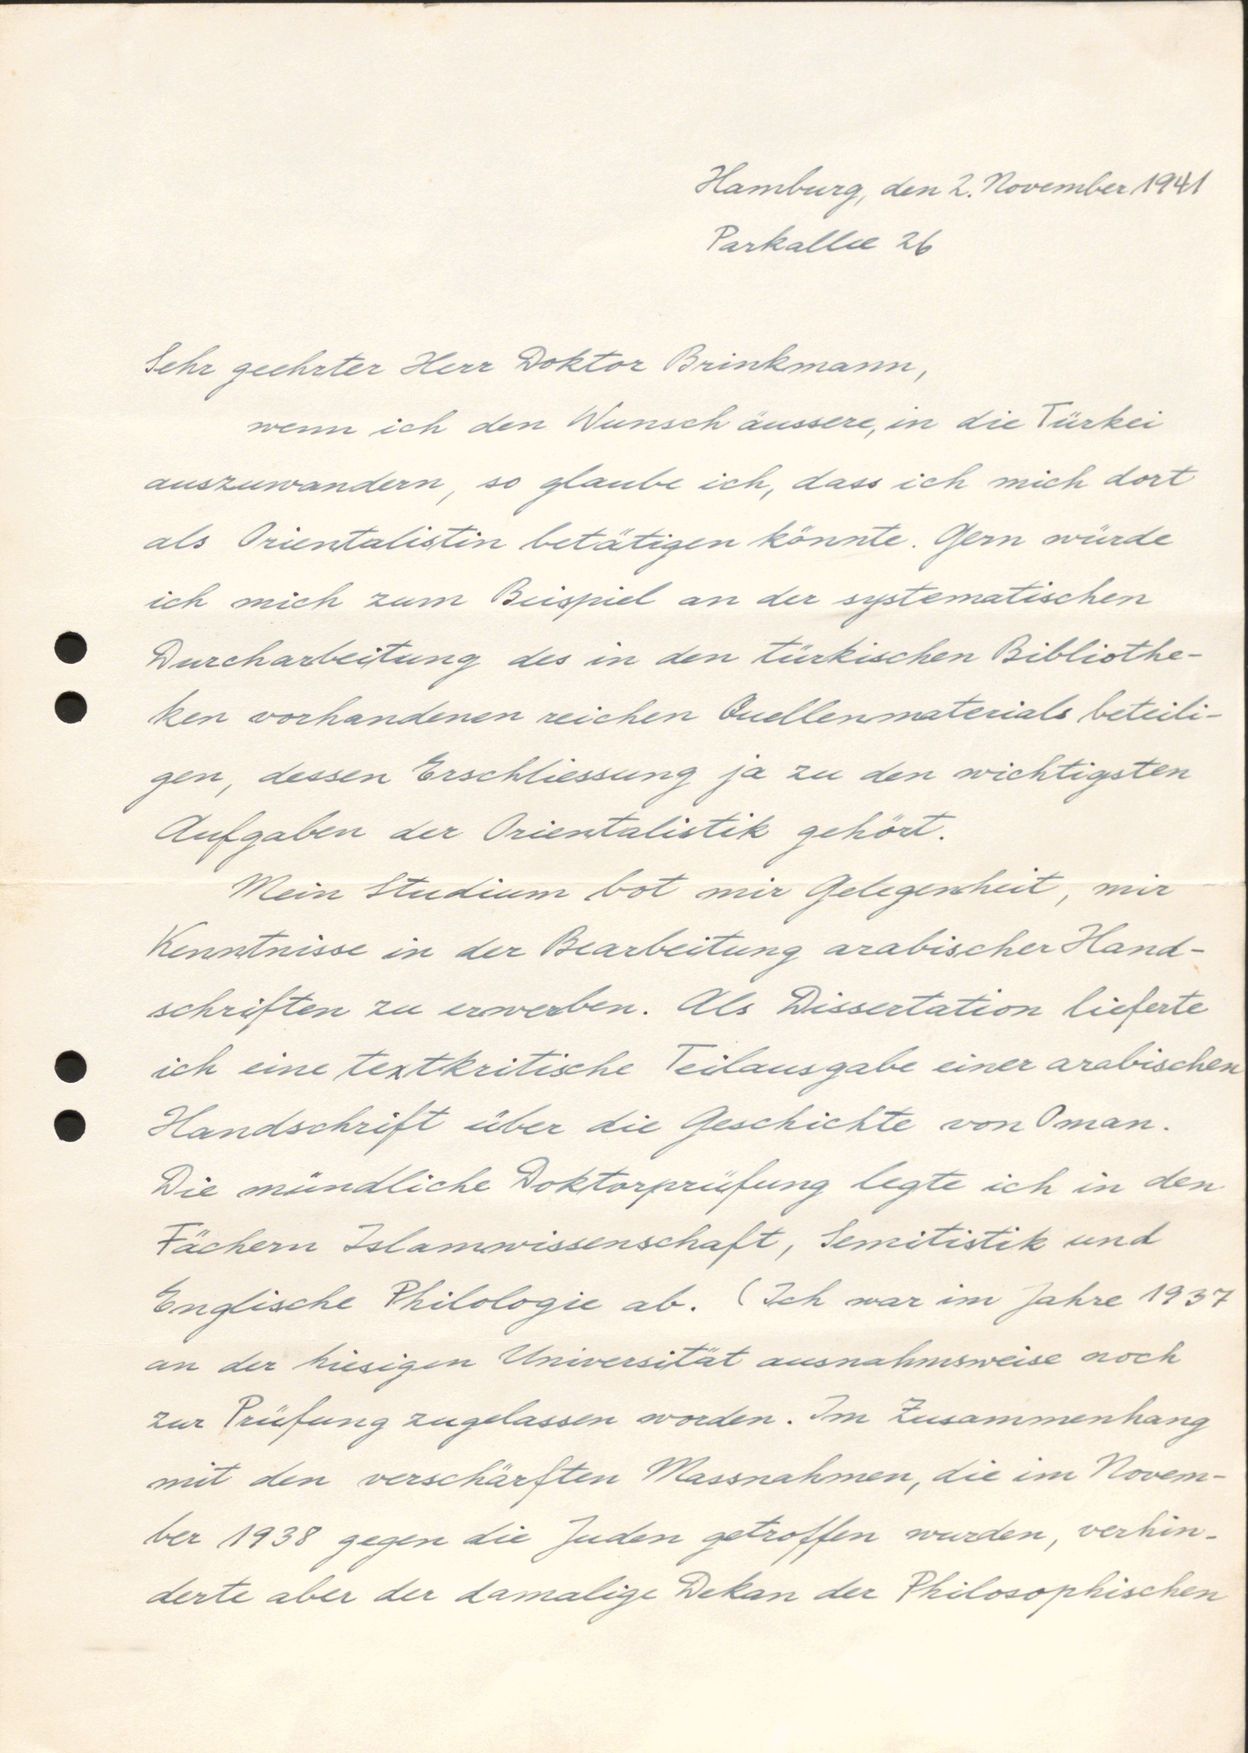 Hamburg, den 2. November 1941
Parkallee 26
Sehr geehrter Herr Doktor Brinkmann,
wenn ich den Wunsch äussere, in die Türkei
auszuwandern, so glaube ich, dass ich mich dort
als Orientalistin betätigen könnte. Gern würde
ich mich zum Beispiel an der systematischen
Durcharbeitung des in den türkischen Bibliothe-
ken vorhandenen reichen Quellenmaterials beteili-
gen, dessen Erschliessung ja zu den wichtigsten
Aufgaben der Orientalistik gehört.
Mein Studium bot mir Gelegenheit, mir
Kenntnisse in der Bearbeitung arabischer Hand-
schriften zu erwerben. Als Dissertation lieferte
ich eine textkritische Teilausgabe einer arabischen
Handschrift über die Geschichte von Oman.
Die mündliche Doktorprüfung legte ich in den
Fächern Islamwissenschaft, Semitistik und
Englische Philologie ab. (Ich war im Jahre 1937
an der hiesigen Universität ausnahmsweise noch
zur Prüfung zugelassen worden. Im Zusammenhang
mit den verschärften Massnahmen, die im Novem-
ber 1938 gegen die Juden getroffen wurden, verhin-
derte aber der damalige Dekan der Philosophischen